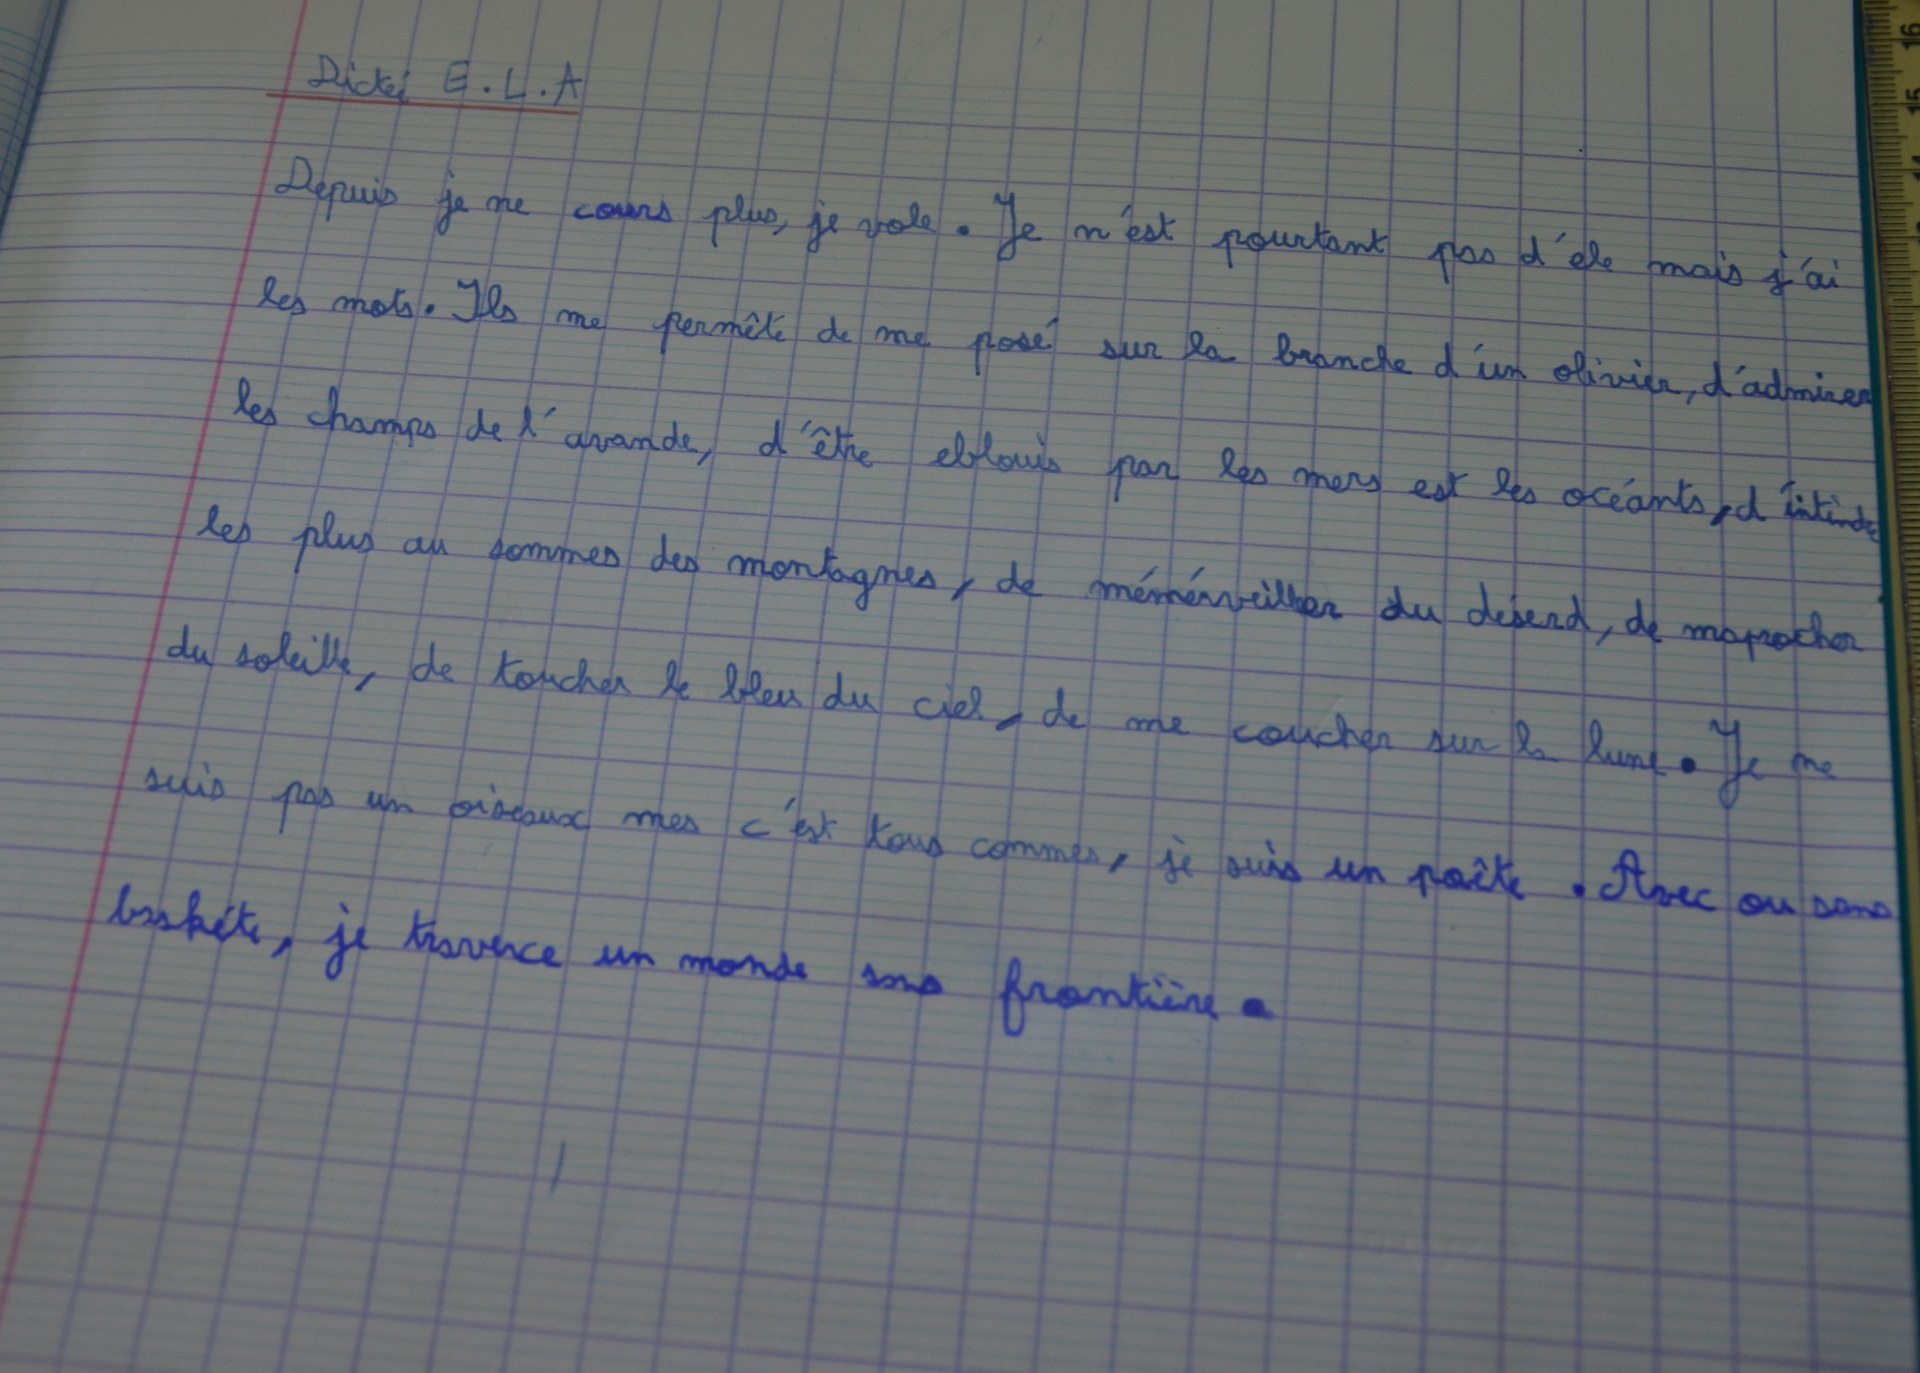 Dicté E.L.A
Depuis je ne cours plus, je vole. Je n'est pourtant pas d'éle mais j'ai
les mots. Ils me permête de me posé sur la branche d'un olivier, d'admirer
les champs de l'avande, d'être eblouis par les mers est les océants, d'
les plus au sommes des montagnes, de mémérveiller du déserd, de maprocher
du soleille, de toucher le bleu du ciel, de me coucher sur la lune. Je ne
suis pas un oiseaux mes c'est tous commes, je suis un poête. Avec ou sans
baskéte, je traverce un monde sans frontière.
16
15
14